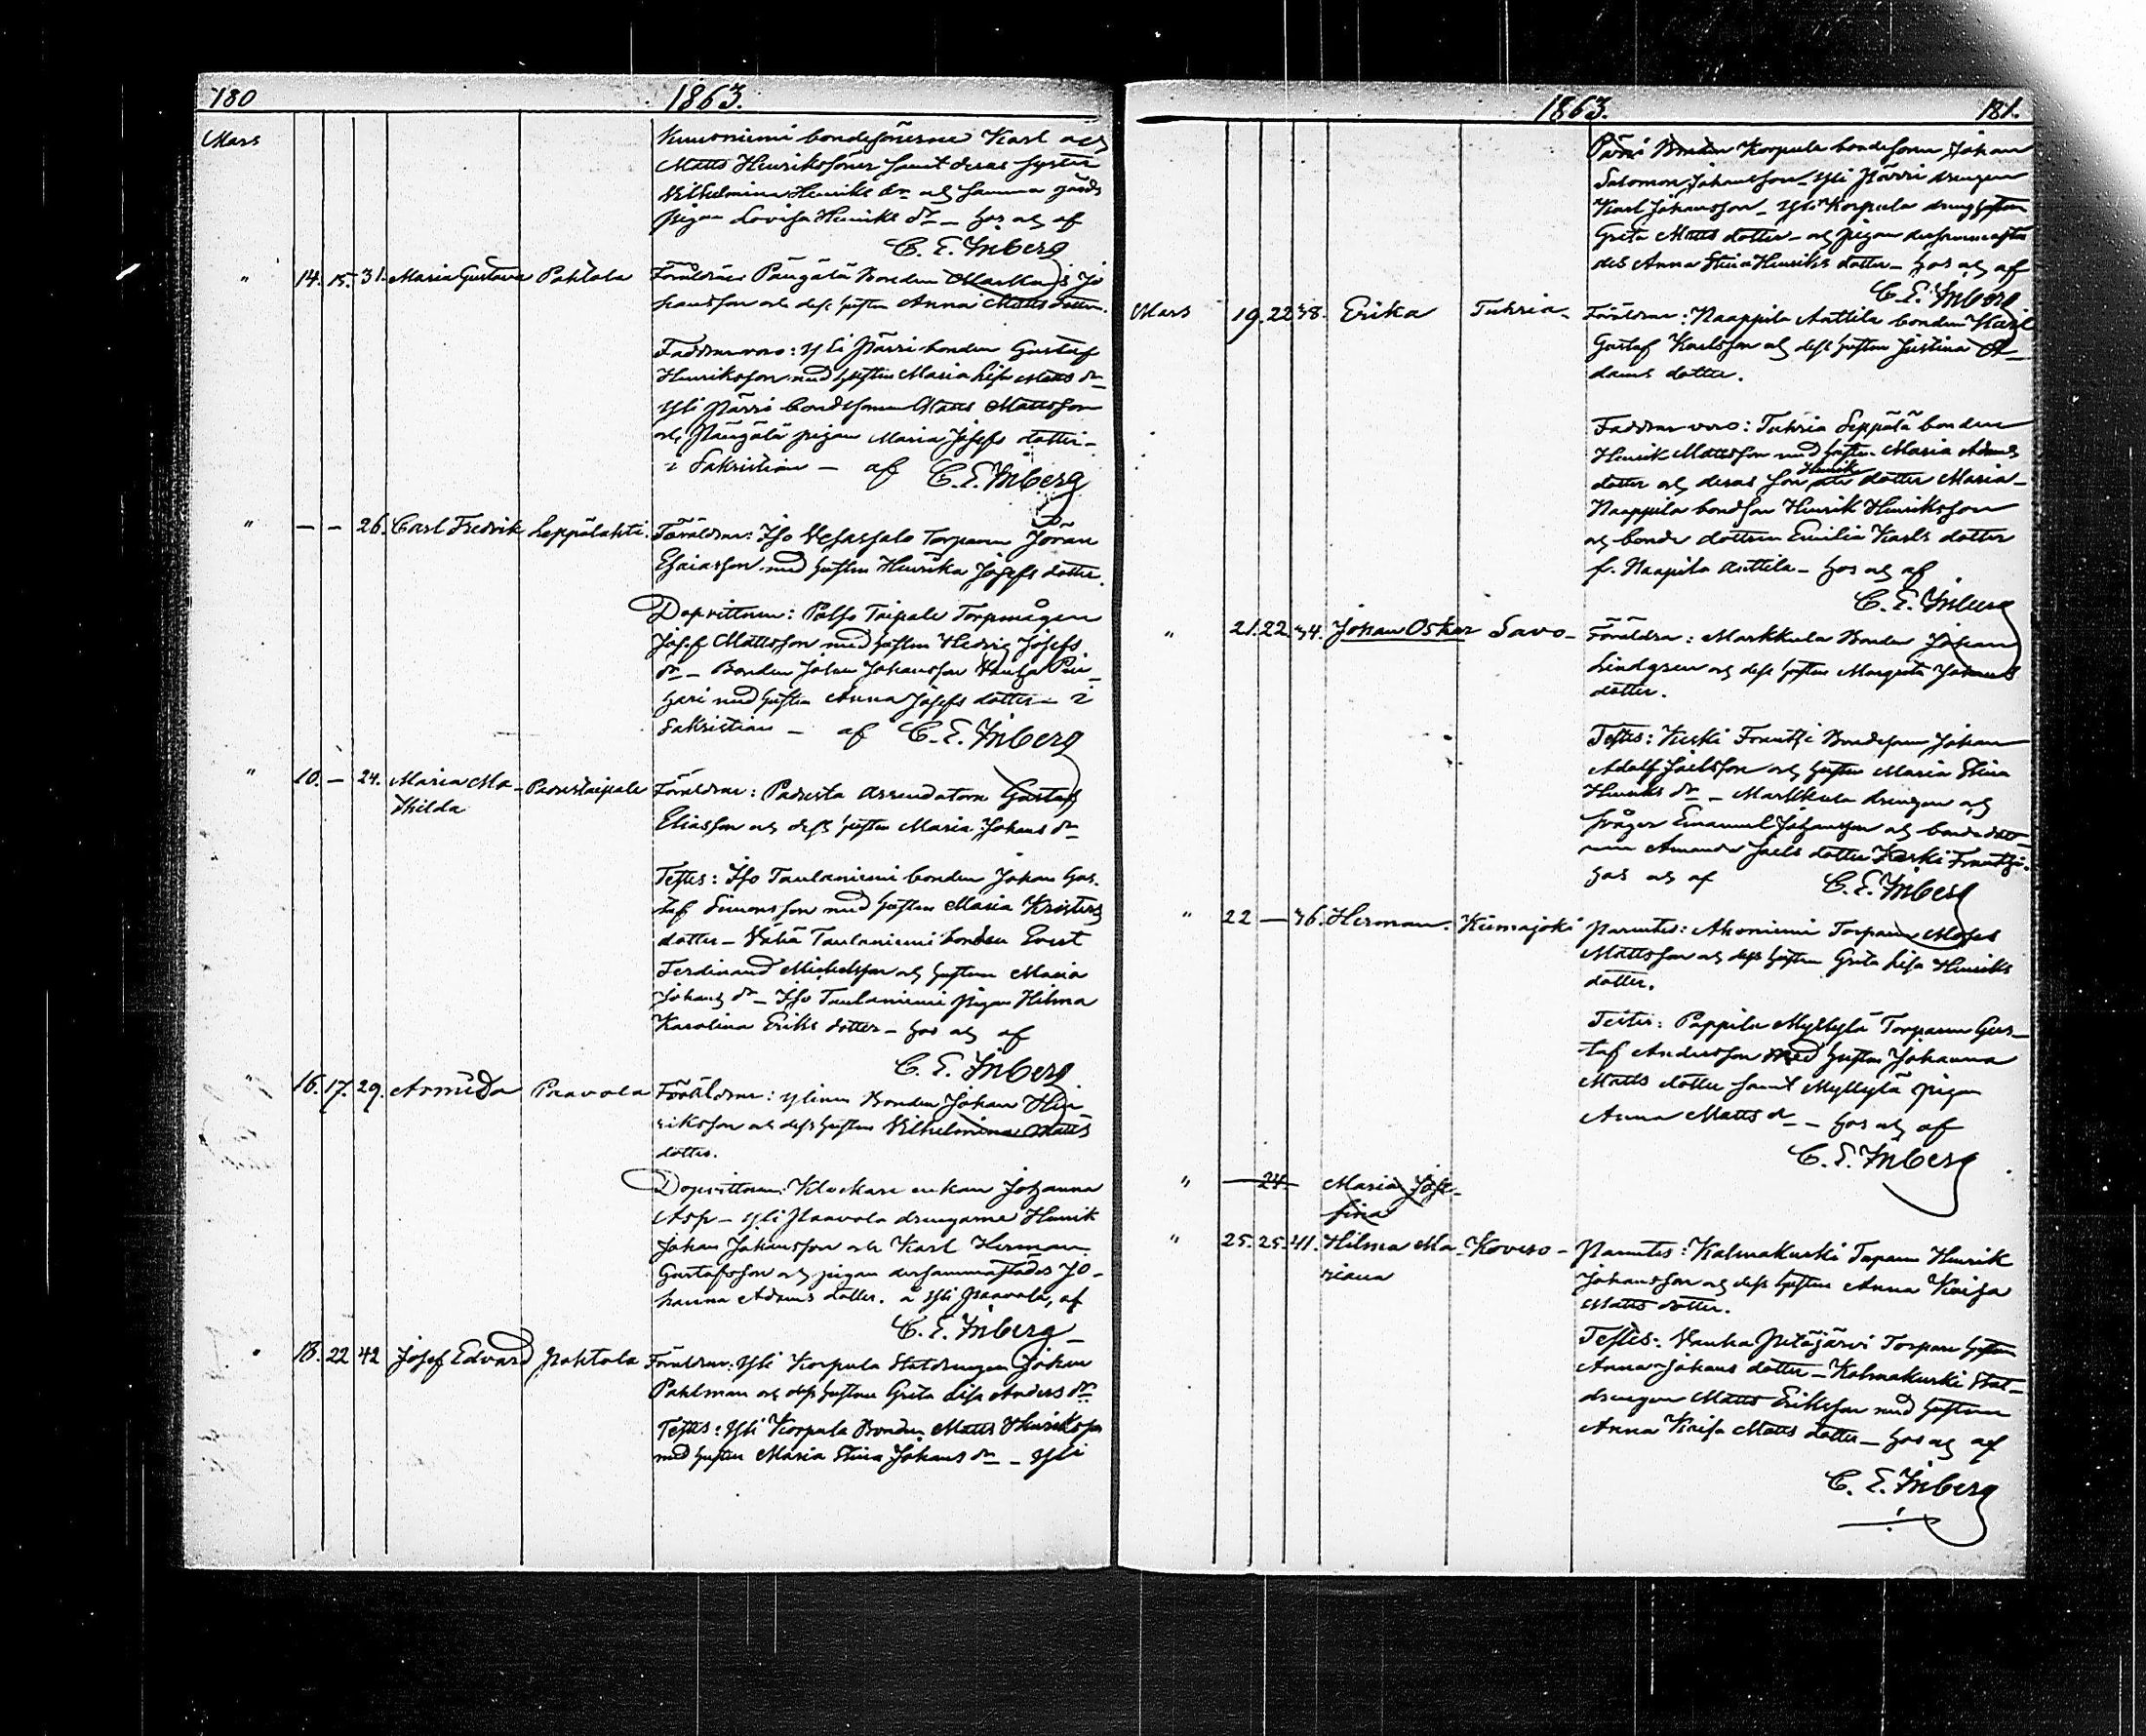 180 1863.
Mars Kuusniemi bondesönerne Karl och
Matts Henrikssöner samt deras syster
Vilhelmina Henriks dr och samma gårds
pigan Lovisa Henriks dr — hos oss af
C. E. Inberg
" 14. 15. 31. Maria Gustava Pohtola Föräldrar: Päügälä Bonden Markus Jo
hansson och dess hustru Anna Matts dotter.
Faddrar voro: Yli Pärri bonden Gustaf
Henriksson med hustrun Maria Lisa Matts dr
Yli Pärri bondesonen Matts Mattsson
och Päügälä pigan Maria Josefs dotter —
i Sakristian — af C. E. Inberg
" — — 26. Carl Fredrik Leppälahti. Föräldrar: Iso Torparen Jöran
Esaiasson med hustrun Henrika Josefs dotter.
Dopvittnen: Palso Taipale Torpmågen
Josef Mattsson med hustrun Hedvig Josefs
dr — Bonden Johan Johansson
med hustrun Anna Josefs dotter — i
Sakristian — af C. E. Inberg
" 10. — 24. Maria Ma- Padustaipale Föräldrar: Padusta Arrendatorn Gustaf
thilda Eliasson och dess hustru Maria Johans dr
Testes: Iso Taulaniemi bonden Johan Gus-
taf Simonsson med hustrun Maria Kristers
dotter — Vähä Taulaniemi bonden Evert
Ferdinand Michelsson och hustrun Maria
Johans dr — Iso Taulaniemi pigan Hilma
Karolina Eriks dotter — hos oss af
C. E. Inberg
" 16. 17. 29. Armida Paavola Föräldrar: Ylinen Bonden Johan Hen-
riksson och dess hustru Vilhelmina Matts
dotter.
Dopvittnen: Klockare enkan Johanna
Asp — Yli Paavola drengarne Henrik
Johan Johansson och Karl Herman
Gustafsson och pigan dersammastädes Jo-
hanna Adams dotter. å Yli Paavola, af
C. E. Inberg —
" 18. 22 42 Josef Edvard Pohtola Föräldrar: Yli Korpula Statdrengen Johan
Pahlman och dess hustru Greta Lisa Anders dr.
Testes: Yli Korpula Bonden Matts Henriksson
med hustrun Maria Stina Johans dr — Yli
1863. 181.
Pärri Korpula bondesonen Johan
Salomon Johansson — Yli Pärri drengen
Karl Johansson — Yli Korpula dreng hustrun
Greta Matts dotter — och pigan dersammastä
des Anna Stina Henriks dotter — hos oss af
C. E. Inberg
Mars 19. 22 38. Erika Tuhria — Föräldrar: Naappila Anttila bonden Karl
Gustaf Karlsson och dess hustru Justina A-
dams dotter.
Faddrar voro: Tuhria Seppälä bonden
Henrik Mattsson med hustrun Maria Adams
dotter och deras son Henrik dotter Maria —
Naappila bondson Henrik Henriksson
och bonde dottren Emilia Karls dotter
f. Naapila Anttila — hos oss af
C. E. Inberg
" 21. 22. 34. Johan Oskar Savo — Föräldrar: Markkula Bonden Johan
Lindgren och dess hustru Margreta Johans
dotter.
Testes: Keski Frantsi Bondesonen Johan
Adolf Joelsson och hustrun Maria Stina
Henriks dr — Markkula drengen och
svåger Emanuel Johansson och bondedott-
ren Amanda Joels dotter Keski Frantsi.
hos oss af C. E. Inberg
" 22 — 36. Herman. Kiimajoki Parentes: Ahoniemi Torparen Moses
Mattsson och dess hustru Greta Lisa Henriks
dotter.
Testes: Pappila Myllylä Torparen Gus-
taf Andersson med hustrun Johanna
Matts dotter samt Myllylä pigan
Anna Matts dr — hos oss af
C. E. Inberg
" — 24 — Maria Jose-
fina
" 25. 25. 41. Hilma Ma- Kovero — Parentes: Kalmakurki Torparen Henrik
riana Johansson och dess hustru Anna Kaisa
Matts dotter.
Testes: Vanha Pitäjärvi Torpare hustrun
Anna Johans dotter — Kalmakurki Stat-
drengen Matts Eriksson med hustrun
Anna Kaisa Matts dotter — hos oss af
C. E. Inberg